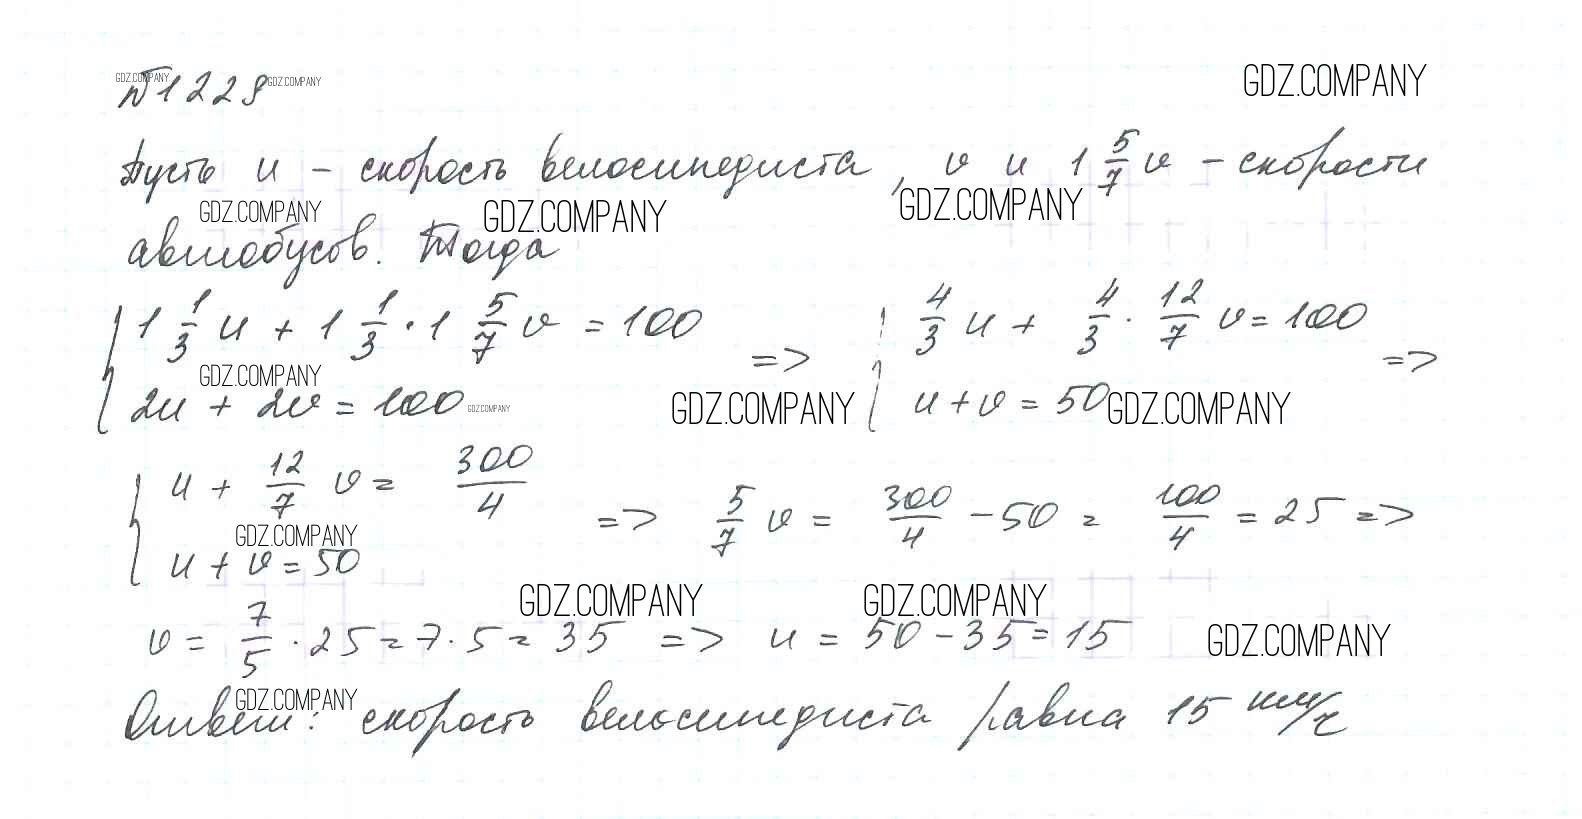 №1228
GDZ.COMPANY GDZ.COMPANY GDZ.COMPANY
Пусть u – скорость велосипедиста, v и 1 5/7 v – скорости
GDZ.COMPANY GDZ.COMPANY GDZ.COMPANY
автобусов. Тогда
{ 1 1/3 u + 1 1/3 · 1 5/7 v = 100 => { 4/3 u + 4/3 · 12/7 v = 100 =>
GDZ.COMPANY
2u + 2v = 100 u + v = 50
GDZ.COMPANY GDZ.COMPANY GDZ.COMPANY
{ u + 12/7 v = 300/4 => 5/7 v = 300/4 – 50 = 100/4 = 25 =>
GDZ.COMPANY
u + v = 50
GDZ.COMPANY GDZ.COMPANY
v = 7/5 · 25 = 7 · 5 = 35 => u = 50 – 35 = 15
GDZ.COMPANY
GDZ.COMPANY
Ответ: скорость велосипедиста равна 15 км/ч